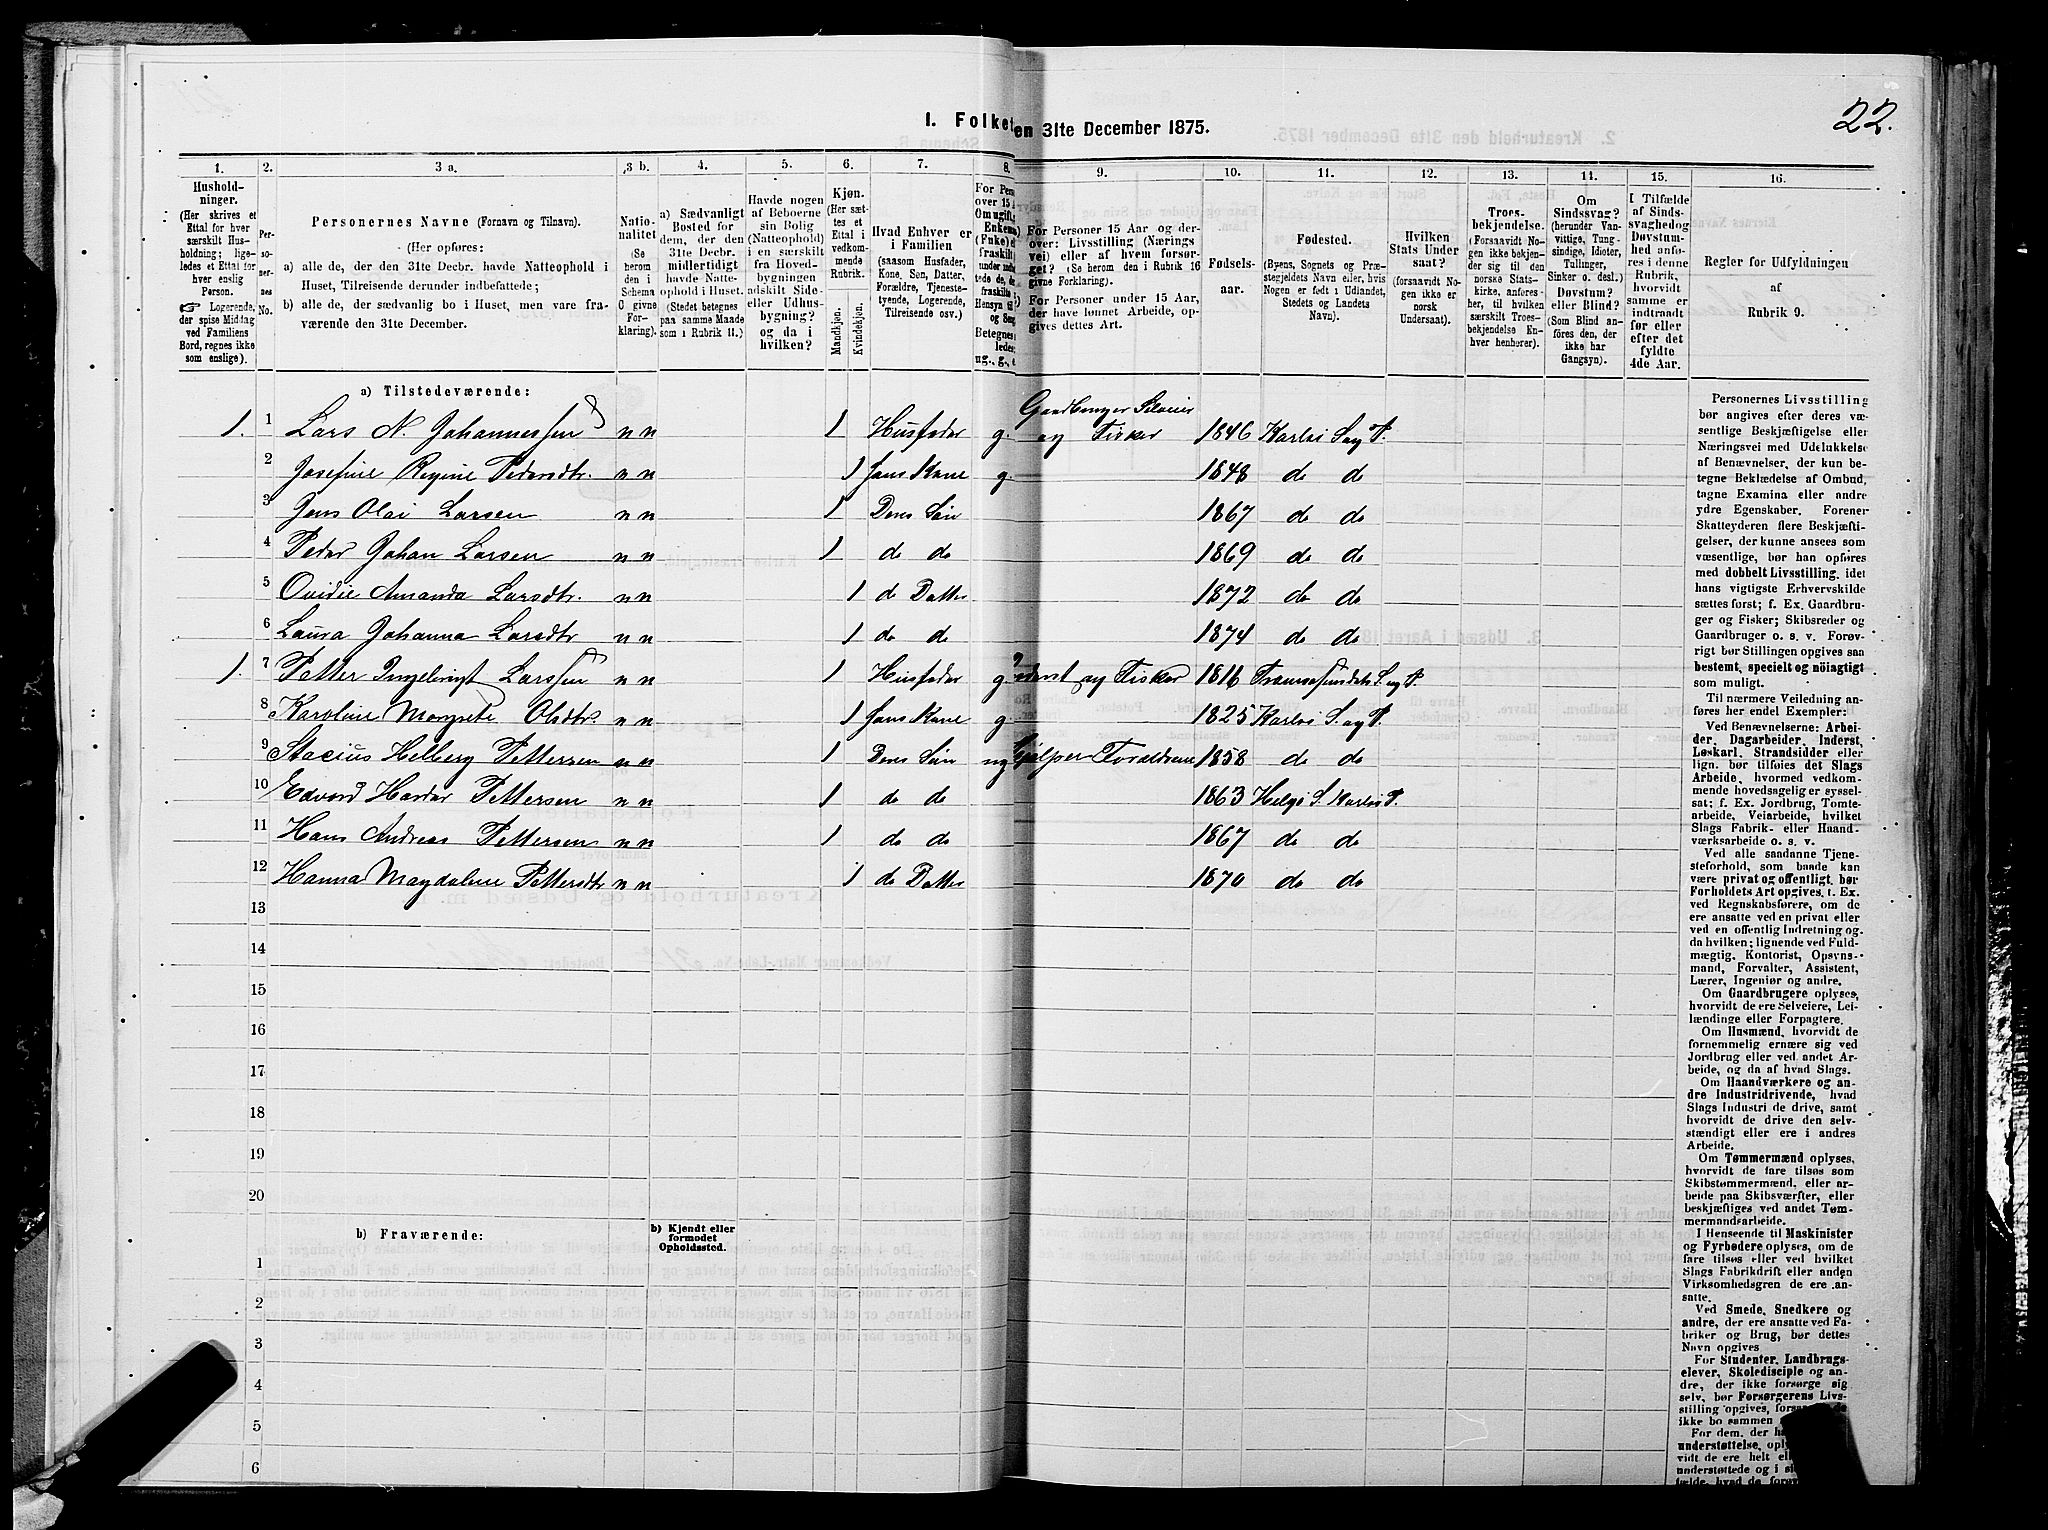 22.
I. Folket
en 31te December 1875.
1. 2. 3 a. 3 b. 4. 5. 6. 7. 8. 9. 10. 11. 12. 13. 11. 15. 16.
Hushold-
ninger.
(Her skrives et
Ettal for hver
særskilt Hus-
holdning; lige-
ledes et Ettal for
hver enslig
Person.
☞ Logerende,
der spise Middag
ved Familiens
Bord, regnes ikke
som enslige).
Per-
so-
ner-
nes
No.
Personernes Navne (Fornavn og Tilnavn).
(Her opføres:
a) alle de, der den 31te Decbr. havde Natteophold i
Huset, Tilreisende derunder indbefattede;
b) alle de, der sædvanlig bo i Huset, men vare fra-
værende den 31te December.
Natio-
nalitet
(Se
herom
den i
Schema
O givne
For-
klaring).
a) Sædvanligt
Bosted for
dem, der den
31te Decbr.
midlertidigt
havde Natte-
ophold i Huset.
(Stedet betegnes
paa samme Maade
som i Rubrik 11.)
Havde nogen
af Beboerne
sin Bolig
(Natteophold)
i en særskilt
fra Hoved-
bygningen
adskilt Side-
eller Udhus-
bygning?
og da i
hvilken?
Kjøn.
(Her sæt-
tes et
Ettal i
vedkom-
mende
Rubrik.
Mandkjøn.
Kvindekjøn.
Hvad Enhver er
i Familien
(saasom Husfader,
Kone, Søn, Datter,
Forældre, Tjeneste-
tyende, Logerende,
Tilreisende osv.)
For Pers
over 15 A
Om ugift,
Enkema
(Fuke) e
fraskilt
Betegnes
ledes
ug., g., e
For Personer 15 Aar og der-
over: Livsstilling (Nærings
vei) eller af hvem forsør-
get? (Se herom den i Rubrik 16
givne Forklaring).
For Personer under 15 Aar,
der have lønnet Arbeide, op-
gives dettes Art.
Fødsels-
aar.
Fødested.
(Byens, Sognets og Præ-
stegjeldets Navn eller, hvis
Nogen er født i Udlandet,
Stedets og Landets
Navn).
Hvilken
Stats Under
saat?
(forsaavidt No-
gen ikke er
norsk
Undersaat).
Troes-
bekjendelse.
(Forsaavidt No-
gen ikke bekjen-
der sig til den
norske Stats-
kirke, anføres
her, til hvilken
særskilt Troes-
bekjendelse En-
hver henhører).
Om
Sindssvag?
(herunder Van-
vittige, Tung-
sindige, Idioter,
Tullinger,
Sinker o. desl.)
Døvstum?
eller Blind?
(Som Blind an-
føres den, der
ikke har
Gangsyn).
I Tilfælde
af Sinds-
svaghed og
Døvstum-
hed anfø-
res i denne
Rubrik,
hvorvidt
samme er
indtraadt
før eller
efter det
fyldte
4de Aar.
Regler for Udfyldningen
af
Rubrik 9.
a) Tilstedeværende:
1. 1 Lars N. Johannessen n n 1 Husfader g. Gaardbruger Selveier og Fisker 1846 Karlsö S og P.
2 Josefine Regine Pedersdtr. n n 1 hans Kone g. 1848 do do
3 Jens Olai Larsen n n 1 Deres Søn 1867 do do
4 Peder Johan Larsen n n 1 do do 1869 do do
5 Ovidie Amanda Larsdtr. n n 1 do Datter 1872 do do
6 Laura Johanna Larsdtr n n 1 do do 1874 do do
1. 7 Petter Ingebrigt Larssen n n 1 Husfader g. Inderst og Fisker 1816 Tromsesundets S. og P.
8 Karoline Margrete Olsdtr. n n 1 hans Kone g. 1825 Karlsö S. og P.
9 Stacius Helberg Pettersen n n 1 Deres Søn ug Hjælper Forældrene 1858 do do
10 Edvard Hardar Pettersen n n 1 do do 1863 Helgö S. Karlsö P.
11 Hans Andreas Pettersen n n 1 do do 1867 do do
12 Hanna Magdalene Pettersdtr n n 1 do Datter 1870 do do
13
14
15
16
17
18
19
20
b) Fraværende:
b) Kjendt eller
formodet
Opholdssted.
1
2
3
4
5
6
Personernes Livsstilling
bør angives efter deres væ-
sentlige Beskjæftigelse eller
Næringsvei med Udelukkelse
af Benævnelser, der kun be-
tegne Beklædelse af Ombud,
tagne Examina eller andre
ydre Egenskaber. Forener
Skatteyderen flere Beskjæfti-
gelser, der kunne ansees som
væsentlige, bør han opføres
med dobbelt Livsstilling, idet
hans vigtigste Erhvervskilde
sættes først; f. Ex. Gaardbru-
ger og Fisker; Skibsreder og
Gaardbruger o. s. v. Forøv-
rigt bør Stillingen opgives saa
bestemt, specielt og nöiagtigt
som muligt.
Til nærmere Veiledning an-
føres her endel Exempler:
Ved Benævnelserne: Arbei-
der, Dagarbeider, Inderst,
Løskarl, Strandsidder eller
lign. bør tilføies det Slags
Arbeide, hvormed vedkom-
mende hovedsagelig er syssel-
sat; f. Ex. Jordbrug, Tomte-
arbeide, Veiarbeide, hvilket
Slags Fabrik- eller Haand-
værksarbeide o. s. v.
Ved alle saadanne Tjene-
steforhold, som baade kan
være privat og offentligt, bør
Forholdets Art opgives, f. Ex.
ved Regnskabsførere, om de
ere ansatte ved en privat eller
ved en offentlig Indretning og
da hvilken; lignende ved Fuld-
mægtig, Kontorist, Opsyns-
mand, Forvalter, Assistent,
Lærer, Ingeniør og andre.
Om Gaardbrugere oplyses,
hvorvidt de ere Selveiere, Lei-
lændinge eller Forpagtere.
Om Husmænd, hvorvidt de
fornemmelig ernære sig ved
Jordbrug eller ved andet Ar-
beide, og da af hvad Slags.
Om Haandværkere og an-
dre Industridrivende, hvad
Slags Industri de drive, samt
hvorvidt de drive den selv-
stændigt eller ere i andres
Arbeide.
Om Tømmermænd oplyses,
hvorvidt de fare tilsøs som
Skibstømmermænd, eller ar-
beide paa Skibsværfter, eller
beskjæftiges ved andet Tøm-
mermandsarbeide.
I Henseende til Maskinister
og Fyrbødere oplyses, om de
fare tilsøs eller ved hvilket
Slags Fabrikdrift eller anden
Virksomhedsgren de ere an-
satte.
Ved Smede, Snedkere og
andre, der ere ansatte ved Fa-
briker og Brug, bør dettes
Navn opgives
For Studenter, Landbrugs-
elever, Skoledisciple og an-
dre, der ikke forsørge sig
selv, bør Forsørgerens Livs-
stilling opgives,
ikke bo sammen
For dem, der
understøttelse,
vidt de ere helt
understøttede og i